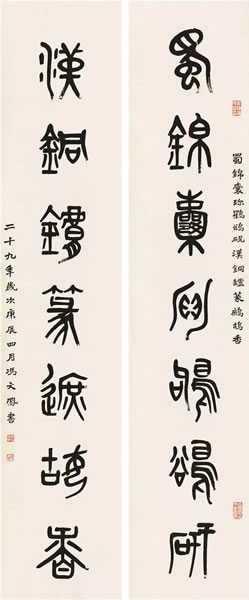 蜀錦囊珍鸜鵒硯漢銅鑪篆鷓鴣香
蜀錦囊珍鸜鵒研
漢銅鑪篆遮故香
二十九年歲次庚辰四月馮文鳳書